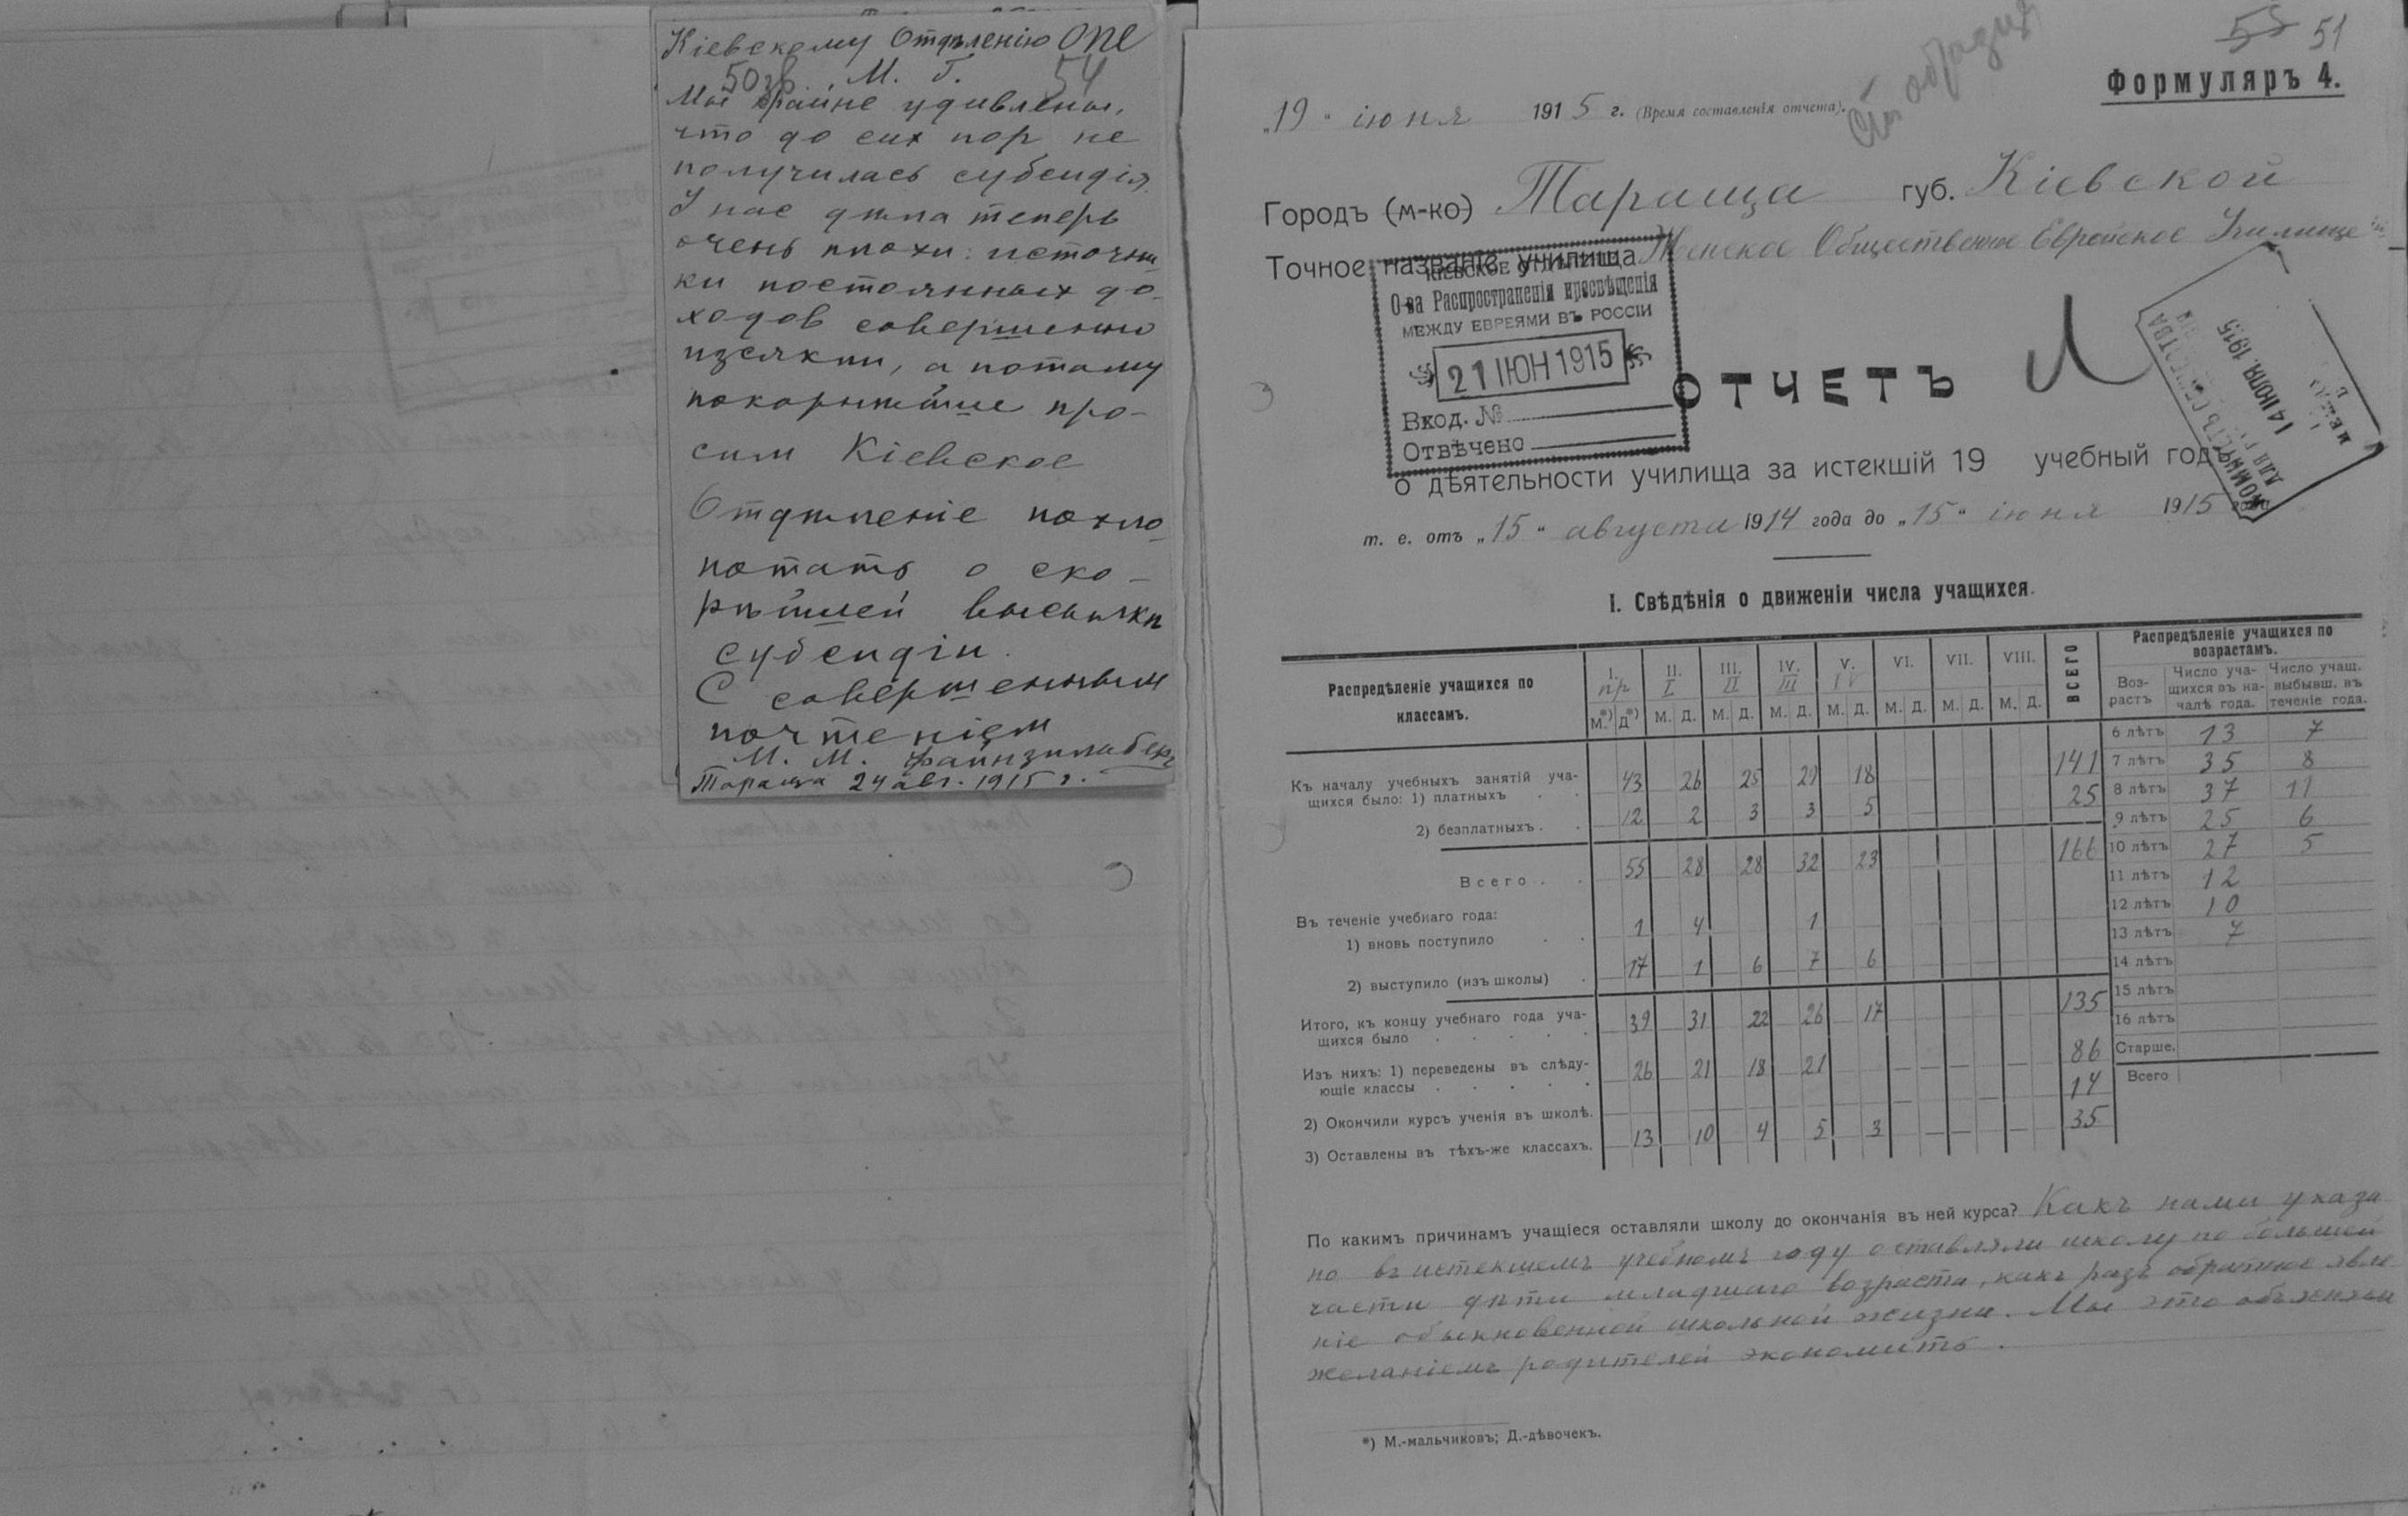 Кіевскому Отдѣленію ОПЕ
50 об. М. Г. 54
Мы крайне удивлены,
что до сих пор не
получилась субсидія.
У нас дѣла теперь
очень плохи: источни-
ки постоянных до-
ходов совершенно
изсякли, а потому
покорнѣйше про-
сим Кіевское
Отдѣленіе похло-
потать о ско-
рѣйшей высылкѣ
субсидіи.
С совершенным
почтеніем
М. М. Файнзильберг
Тараща 24 авг. 1915 г.
55 51
Формуляръ 4.
„19“ іюня 1915 г. (Время составленія отчета).
Городъ (м-ко) Тараща губ. Кіевской
Точное названіе училища Женское Общественное Еврейское Училище
КІЕВСКОЕ ОТДѢЛЕНІЕ
О-ва Распространенія просвѣщенія
МЕЖДУ ЕВРЕЯМИ ВЪ РОССІИ
21 ІЮН 1915
Вход. №
Отвѣчено
14 ІЮЛЯ. 1915
ОТЧЕТЪ
о дѣятельности училища за истекшій 19 учебный годъ
т. е. отъ „15“ августа 1914 года до „15“ іюня 1915 года
I. Свѣдѣнія о движеніи числа учащихся.
Распредѣленіе учащихся по классамъ.
I. II. III. IV. V. VI. VII. VIII. ВСЕГО
пр I II III IV
М.*) Д*) М. Д. М. Д. М. Д. М. Д. М. Д. М. Д. М. Д.
Къ началу учебныхъ занятій уча-
щихся было: 1) платныхъ 43 26 25 29 18 141
2) безплатныхъ. 12 2 3 3 5 25
Всего. 55 28 28 32 23 166
Въ теченіе учебнаго года:
1) вновь поступило 1 4 1
2) выступило (изъ школы) 17 1 6 7 6
Итого, къ концу учебнаго года уча-
щихся было 39 31 22 26 17 135
Изъ нихъ: 1) переведены въ слѣду-
ющіе классы 26 21 18 21 86
2) Окончили курсъ ученія въ школѣ. 14
3) Оставлены въ тѣхъ-же классахъ. 13 10 4 5 3 35
Распредѣленіе учащихся по
возрастамъ.
Воз-
растъ
Число уча-
щихся въ на-
чалѣ года.
Число учащ.
выбывш. въ
теченіе года.
6 лѣтъ 13 7
7 лѣтъ 35 8
8 лѣтъ 37 11
9 лѣтъ 25 6
10 лѣтъ 27 5
11 лѣтъ 12
12 лѣтъ 10
13 лѣтъ 7
14 лѣтъ
15 лѣтъ
16 лѣтъ
Старше.
Всего
По какимъ причинамъ учащіеся оставляли школу до окончанія въ ней курса? Какъ нами указа
но въ истекшемъ учебномъ году оставляли школу по большей
части дѣти младшаго возраста, какъ разъ обратное явле
ніе обыкновенной школьной жизни. Мы это объясняем
желаніемъ родителей экономить.
*) М.-мальчиковъ; Д.-дѣвочекъ.